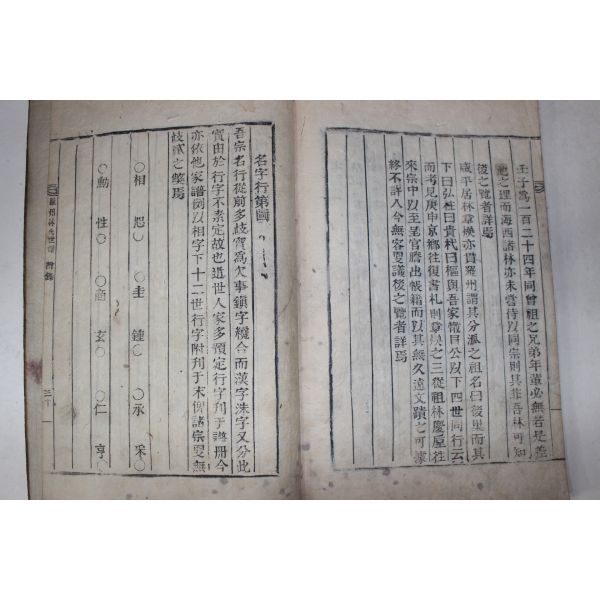 壬子爲一百二十四年同曾祖之兄弟年輩必無若是差
池之理而海西諸林亦未嘗待以同宗則其非吾林可知
後之覽者詳焉
咸平居林章煥亦貫羅州謂其分派之祖名曰後里而其
下曰弘柱曰貴代曰樞與吾家 公以下四世同行云
而考見庚申京鄉往復書札則章煥之三從祖林慶 往
來宗中以至呈官謄出帳籍而以其無久遠文蹟之可據
終不許入今無容更議後之覽者詳焉
名字行第圖
吾宗名行從前多歧實爲欠事鎭字纔合而漢字洙字又分此
實由於行字不素定故也近世人家多預定行字刊于譜册今
亦依他家譜例以相字下十二世行字附刊于末俾諸宗更無
歧貳之 焉
○相 ○ ○圭 ○鍾 ○ 永○ 采○
○ 性○ ○ 玄○ ○ 仁○ 亨○
羅州林氏世譜 附錄